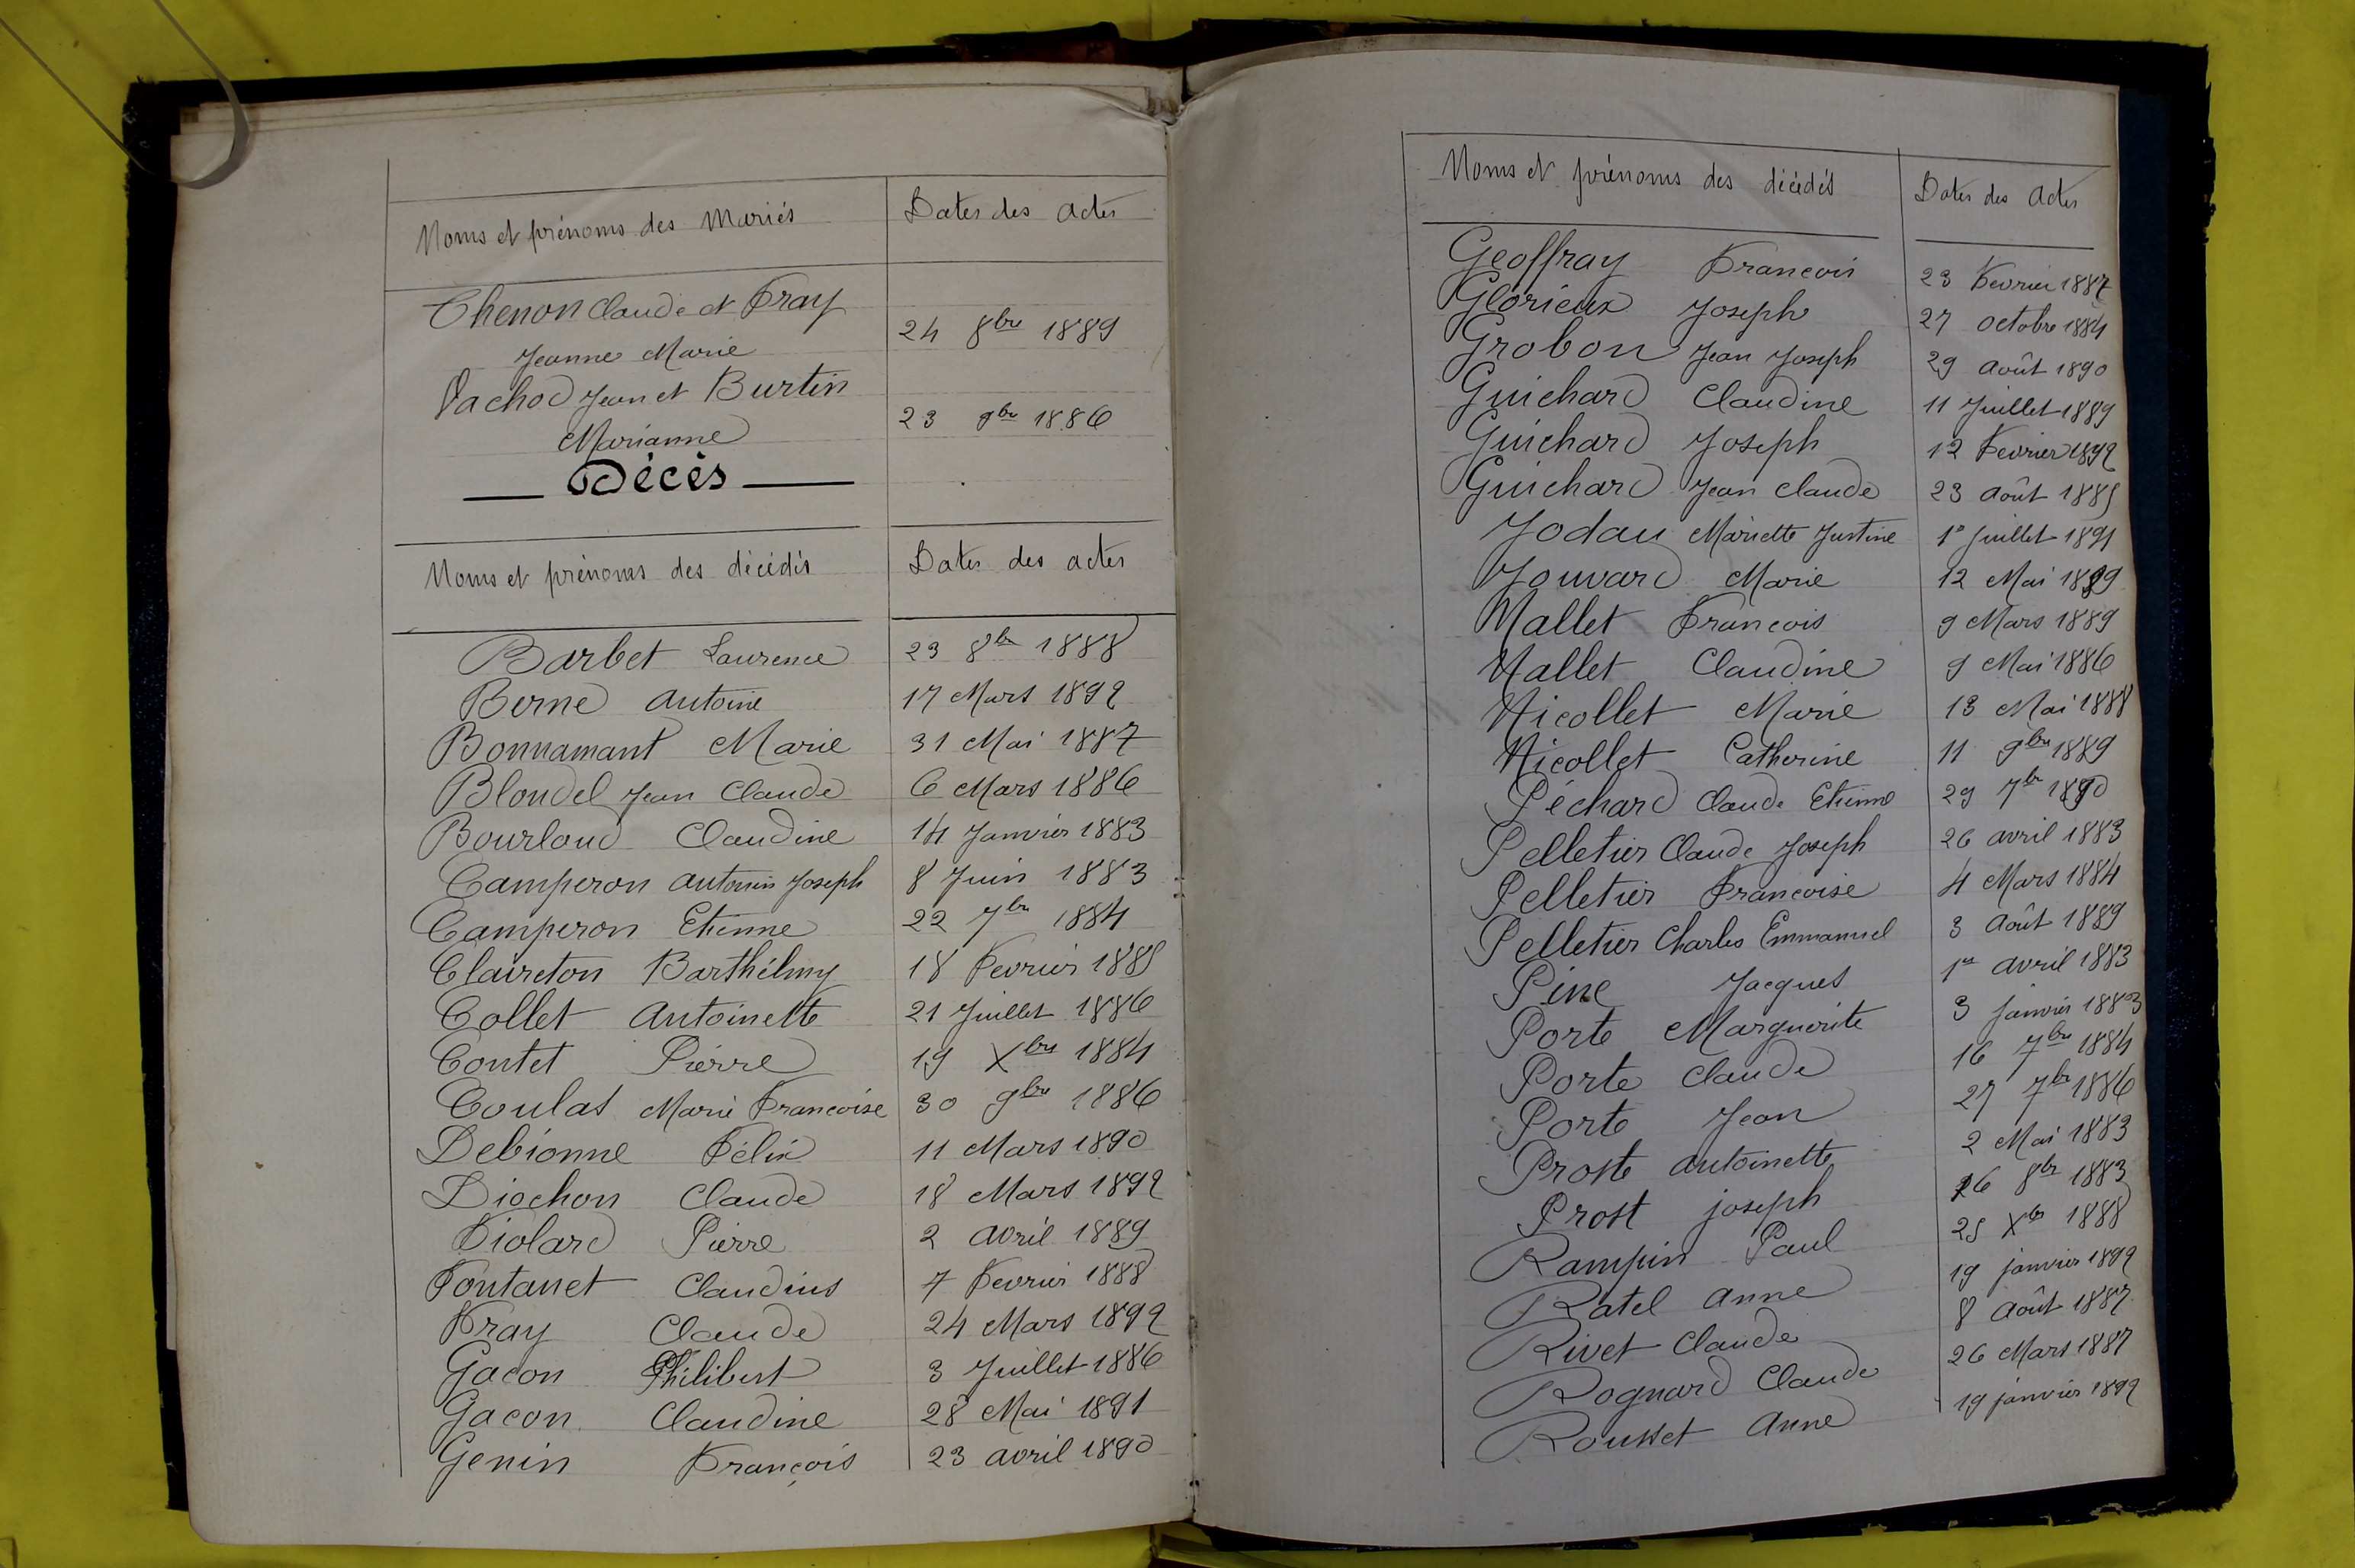 Noms et prénoms des Mariés Dates des actes
Chenon Claude et Fray
Jeanne Marie 24 8bre 1889
Vachod Jean et Burtin
Marianne 23 9bre 1886
— Décès —
Noms et prénoms des décédés Dates des actes
Barbet Laurence 23 8bre 1888
Berne Antoine 17 Mars 1892
Bonnamant Marie 31 Mai 1887
Blondel Jean Claude 6 Mars 1886
Bourloud Claudine 14 Janvier 1883
Camperon Antonin Joseph 8 Juin 1883
Camperon Etienne 22 7bre 1884
Claireton Barthélmy 18 Fevrier 1885
Collet Antoinette 21 Juillet 1886
Contet Pierre 19 Xbre 1884
Coulas Marie Francoise 30 9bre 1886
Debionne Félix 11 Mars 1890
Diochon Claude 18 Mars 1892
Fiolard Pierre 2 Avril 1889
Fontanet Claudius 7 Fevrier 1888
Fray Claude 24 Mars 1892
Gacon Philibert 3 Juillet 1886
Gacon Claudine 28 Mai 1891
Genin François 23 avril 1890
Noms et prénoms des décédés Dates des Actes
Geoffray Francois 23 Fevrier 1887
Glorieux Joseph 27 octobre 1884
Grobon Jean Joseph 29 août 1890
Guichard Claudine 11 Juillet 1889
Guichard Joseph 12 Fevrier 1892
Guichard Jean Claude 23 août 1885
Jodau Mariette Justine 1er Juillet 1891
Jouvard Marie 12 Mai 1889
Mallet Francois 9 Mars 1889
Nallet Claudine 9 Mai 1886
Nicollet Marie 13 Mai 1888
Nicollet Catherine 11 9bre 1889
Péchard Claude Etienne 29 7bre 1890
Pelletier Claude Joseph 26 avril 1883
Pelletier Francoise 4 Mars 1884
Pelletier Charles Emmanuel 3 Août 1889
Pine Jacques 1er avril 1883
Porte Marguerite 3 Janvier 1883
Porte Claude 16 7bre 1884
Porte Jean 27 7bre 1886
Proste Antoinette 2 Mai 1883
Prost joseph 26 8bre 1883
Rampin Paul 25 Xbre 1888
Ratel Anne 19 janvier 1892
Rivet Claude 8 Août 1887
Rognard Claude 26 Mars 1887
Rousset Anne 19 janvier 1892